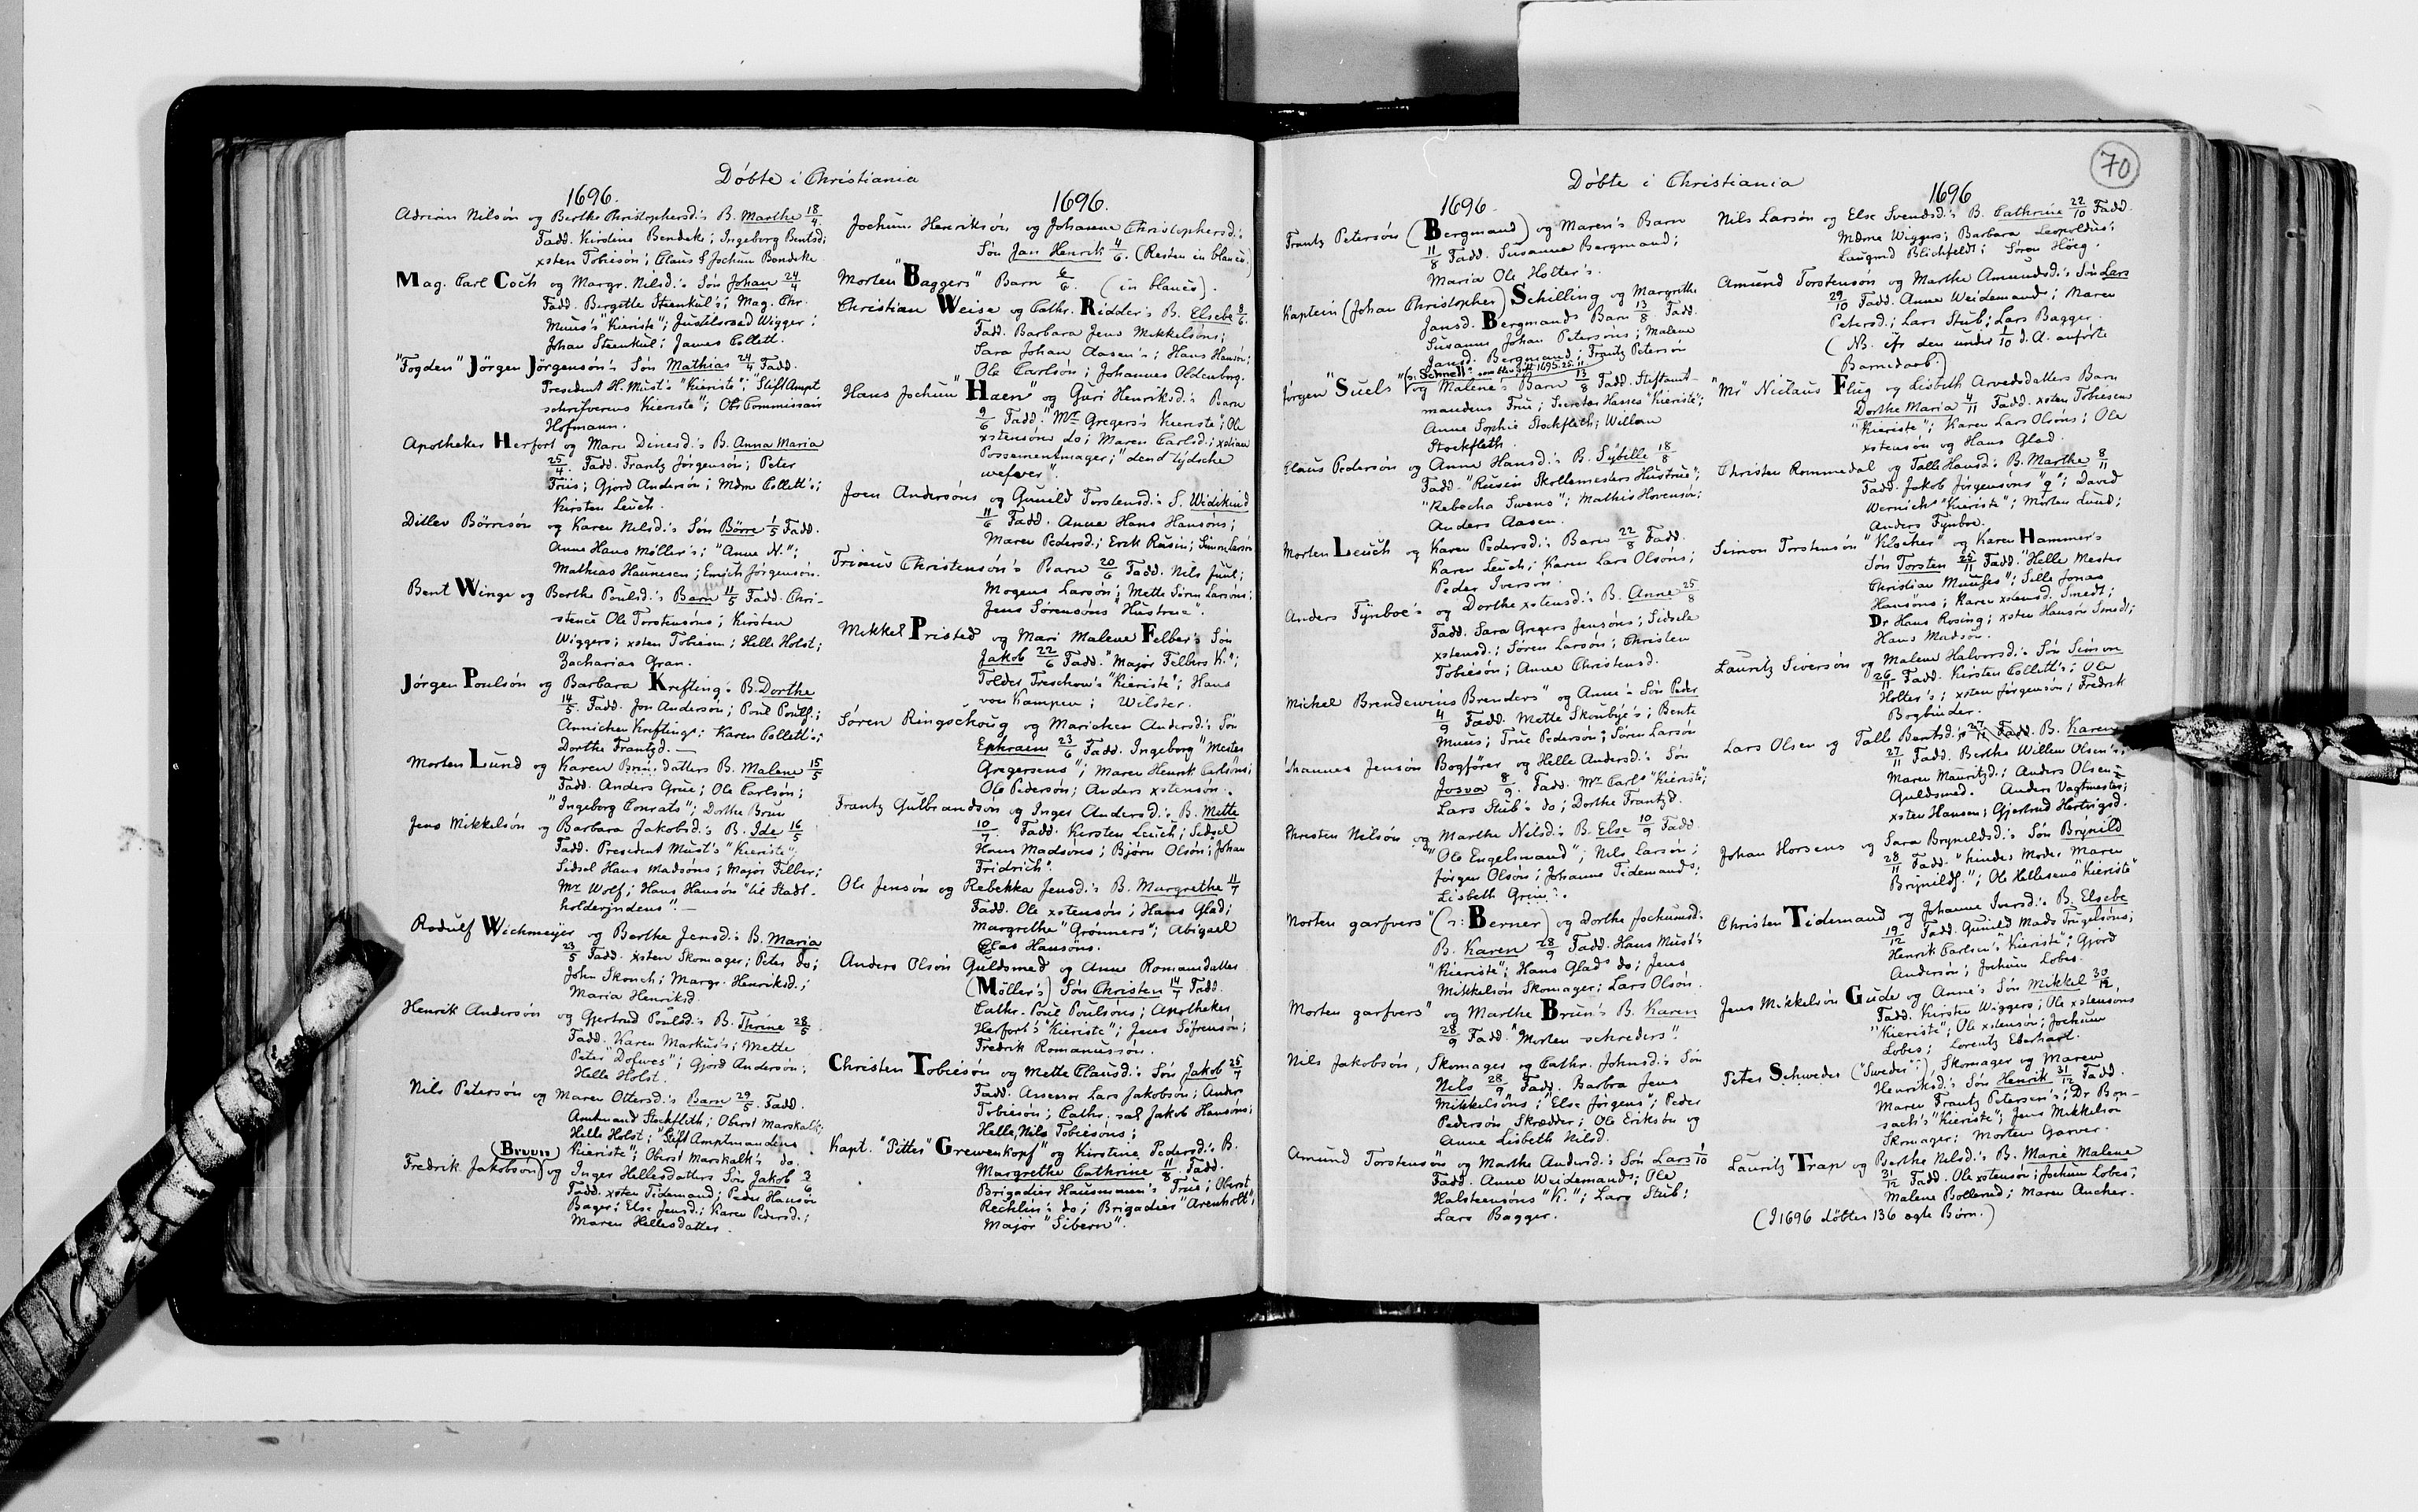 Döbte i Christiania
1696.
Adrian Nilsön og Berthe Christophersd.'s B. Marthe 18/4.
Fadd. Kirstine Bendeke; Ingeborg Bentsd;
xsten Tobiesön; Claus & Jochum Bendeke
Mag. Carl Coch og Margr. Nilsd.'s Sön Johan 24/4
Fadd. Birgitte Steenkul's; Mag. Chr.
Muus's "Kieriste"; Justitsraad Wigger;
Johan Steenkul; James Collett.
"Fogden" Jörgen Jörgensön's Sön Mathias 24/4 Fadd.
President H. Must's "Kieriste"; "Stift Ampt
schrifverens Kieriste"; Ob: Commissair
Hofmann.
Apotheker Herfort og Maren Dinesd.'s B. Anna Maria
25/4. Fadd. Frantz Jörgensön; Peter
Friis; Gjord Andersön; Mdm Collett's;
Kirsten Leuch.
Ditlev Börresön og Karen Nilsd.'s Sön Börre 1/5 Fadd.
Anne Hans Möller's; "Anne N.";
Mathias Haunesen; Emich Jörgensön.
Bent Winge og Berthe Poulsd.'s Barn 11/5 Fadd. Chri-
stence Ole Torstensöns; Kirsten
Wiggers; xsten Tobiesen; Helle Holst;
Zacharias Gran.
Jörgen Poulsön og Barbara Krefting's B. Dorthe
14/5. Fadd. Jon Andersön; Poul Pouls.;
Annichen Kreftings; Karen Collett's;
Dorthe Frantzd. —
Morten Lund og Karen Brun: datters B. Malene 15/5
Fadd. Anders Grue; Ole Carlsön;
"Ingeborg Conrats"; Dorthe Brun
Jens Mikkelsön og Barbara Jakobsd.'s B. Ide 16/5
Fadd. President Must's "Kieriste";
Sidsel Hans Madsöns; Major Felber;
Mr Wolf; Hans Hansön "til Stadt-
holderindens". —
Rodulf Wichmeyer og Berthe Jensd.'s B. Maria
23/5 Fadd. xsten Skomager; Peter do;
John Skouch; Margr. Henriksd.;
Maria Henriksd.
Henrik Andersön og Gjertrud Poulsd.'s B. Thrine 28/5
Fadd. Karen Markus's; Mette
Peter "Dofwes"; Gjord Andersön;
Helle Holst.
Nils Petersön og Maren Ottersd.'s Barn 29/5. Fadd.
Amtmand Stockfleth; Oberst Marskalk;
Helle Holst; "Stift Amptmandens
Kieriste"; Oberst Marskalk's do.
Fredrik Jakobsön (Bruun) og Inger Hellesdatters Sön Jakob 3/6
Fadd. xsten Tidemand; Peder Hansön
Bager; Else Jensd.; Karen Pedersd.;
Maren Hellesdatter.
1696.
Jochum Henriksön og Johanne Christophersd.'s
Sön Jan Henrik 4/6. (Resten in blanco.)
Morten "Baggers" Barn 6/6. (in blanco).
Christian Weise og Cathr. Ridder's B. Elsebe 8/6.
Fadd. Barbara Jens Mikkelsöns;
Sara Johan Aasen's; Hans Hansön;
Ole Carlsön; Johannes Oldenborg.
Hans Jochum "Haen" og Guri Henriksd.'s Barn
9/6 Fadd. "Mr Gregers's Kieriste"; Ole
xstensöns do; Maren Carlsd.; xstian
Possementmager; "dend tydsche
wefver".
Joen Andersöns og Gunild Torstensd.'s S. Widikind
11/6 Fadd. Anne Hans Hansöns;
Maren Pedersd.; Erik Rusin; Simon Larsön
Trinus Christensön's Barn 20/6 Fadd. Nils Juul;
Mogens Larsön; Mette Simn Larsöns;
Jens Sörensöns "Hustrue".
Mikkel Pristed og Mari Malene Felber's Sön
Jakob 22/6 Fadd. "Major Felbers K.";
Tolder Treschow's "Kieriste"; Hans
von Kampen; Wilster.
Sören Ringschoug og Marichen Andersd.'s Sön
Ephraem 23/6 Fadd. Ingeborg "Mester
Gregersens"; Maren Henrik Carlsöns;
Ole Pedersön; Anders xstensön.
Frantz Gulbrandsön og Inger Andersd.'s B. Mette
10/7. Fadd. Kersten Leuch; Sidsel
Hans Madsöns; Björn Olsön; Johan
Fridrich.
Ole Jensön og Rebekka Jensd.'s B. Margrethe 11/7
Fadd. Ole xstensön; Hans Glad;
Margrethe "Grönners"; Abigael
Clas Hansöns.
Anders Olsön Guldsmed og Anne Romansdatter
(Möller's) Sön Christen 14/7 Fadd.
Cathr. Poul Poulsöns; Apotheker
Herfort's "Kieriste"; Jens Söfrensön;
Fredrik Romanussön.
Christen Tobiesön og Mette Clausd.'s Sön Jakob 25/7
Fadd. Assessor Lars Jakobsön; Ander
Tobiesön; Cathr. sal Jakob Hansöns;
Helle Nils Tobiesöns;
Kapt. "Pitter" Grewenkopf" og Kirstine Pedersd.'s B.
Margrethe Cathrine 11/8. Fadd.
Brigadier Hausmann's Frue; Oberst
Recklin's do; Brigadier "Arenholt";
Major "Sibern".
70
Döbte i Christiania
1696.
Frantz Petersön (Bergmand) og Maren's Barn
11/8 Fadd. Susanne Bergmand;
Maria Ole Holter's.
Kaptein (Johan Christopher) Schilling og Margrethe
Jansd. Bergmands Barn 13/8 Fadd.
Susanne Johan Petersöns; Malene
Jansd. Bergmand; Frantz Petersön
Jörgen "Suels" (o: Schnell) og Malene's Barn 13/8 Fadd. Stiftamt-
mandens Frue; Secretær Hasses "Kieriste";
Anne Sophie Stockfleth; Willem
Stockfleth.
Claus Pedersön og Anne Hansd.'s B. Sybille 18/8
Fadd. "Rusin Skollemesters Hustrue";
"Rebecha Swens"; Mathis Hovensön;
Anders Aasen.
Morten Leuch og Karen Pedersd.'s Barn 22/8 Fadd.
Karen Leuch; Karen Lars Olsöns;
Peder Iversön.
Anders Fynboe's og Dorthe xstensd.'s B. Anne 25/8
Fadd. Sara Gregers Jensöns; Sidsele
xstensd.; Sören Larsön; Christen
Tobiesön; Anne Christensd.
Michel Brendewins Brenders" og Anne's Sön Peder
4/9 Fadd. Mette Skoubye's; Bente
Muus; True Pedersön; Sören Larsön
Johannes Jensön Bogförer og Helle Andersd.'s Sön
Josva 8/9. Fadd. Mr Carl's "Kieriste";
Lars Stub's do; Dorthe Frantzd.
Christen Nilsön og Marthe Nilsd.'s B. Else 10/9 Fadd.
"Ole Engelsmand"; Nils Larsön;
Jörgen Olsön; Johanne Tidemands;
Lisbeth Grün.
Morten garfvers" (o: Berner) og Dorthe Jochumsd.
B. Karen 28/9 Fadd. Hans Must's
"Kieriste"; Hans Glads do; Jens
Mikkelsön Skomager; Lars Olsön.
Morten garfvers" og Marthe Brun's B. Karen
28/9 Fadd. "Morten schreders".
Nils Jakobsön, Skomager og Cathr. Johnsd.'s Sön
Nils 28/9 Fadd. Barbra Jens
Mikkelsöns; "Else Jörgens"; Peder
Pedersön Skrædder; Ole Eriksön og
Anne Lisbeth Nilsd.
Amund Torstensön og Marthe Andersd.'s Sön Lars 1/10
Fadd. Anne Weidemands; Ole
Halsteensöns "K."; Lars Stub;
Lars Bagger.
1696
Nils Larsön og Else Svendsd.'s B. Cathrine 22/10 Fadd.
Mdme Wiggers; Barbara Leopoldus;
Laugmd Blichfeldt; Sören Höeg.
Amund Torstensön og Marthe Amundsd.'s Sön Lars
29/10 Fadd. Anne Weidemands; Maren
Petersd.; Lars Stub; Lars Bagger.
(NB. cfr den under 1/10 d. A. anförte
Barnedaab.)
"Mr" Niclaus Flug og Lisbeth Arvedsdatters Barn
Dorthe Maria 4/11 Fadd. xsten Tobiesen
"Kieriste"; Karen Lars Olsöns; Ole
xstensön og Hans Glad.
Christen Rommedal og Talle Hansd.'s B. Marthe 8/11
Fadd. Jakob Jörgensöns "q"; David
Wernichs "Kieriste"; Morten Lund;
Anders Fynboe.
Simon Torstensön "Klocher" og Karen Hammer's
Sön Torsten 25/11 Fadd. "Helle Mester
Christian Muuses"; Sille Jonas
Hansöns; Karen xstensd. Smedt;
Dr Hans Rosing; xsten Hansön Smedt;
Hans Madsön.
Lauritz Siversön og Malene Halvorsd.'s Sön Simon
26/11 Fadd. Kirsten Collett's; Ole
Holter's; xsten Jörgensön; Fredrik
Bogbinder.
Lars Olsen og Talle Bentsd.'s 27/11 Fadd. B. Karen
27/11 Fadd. Berthe Willem Olsen's;
Maren Mauritzd.; Anders Olsen
Guldsmed. Anders Vagtmester;
xsten Hansen; Gjertrud Hertvigsd.
Johan Horsens og Sara Brynildsd.'s Sön Brynild
28/11 Fadd. "hindes Moder Maren
Brynilds."; Ole Hellesens "Kieriste"
Christen Tidemand og Johanne Iversd.'s B. Elsebe
19/12 Fadd. Gunild Mads Trugelsöns;
Henrik Carlsen's "Kieriste"; Gjord
Andersön; Jochum Lobes.
Jens Mikkelsön Gude og Anne's Sön Mikkel 30/12,
Fadd. Kirsten Wiggers; Ole xstensöns
"Kieriste"; Ole xstensön; Jochum
Lobes; Lorentz Eberhard.
Peter Schweder ("Sweder"), Skomager og Maren
Henriksd.'s Sön Henrik 31/12 Fadd.
Maren Frantz Petersen's; Dr Bon-
sach's "Kieriste"; Jens Mikkelsön
Skomager; Morten Garver.
Lauritz Trap og Berthe Nilsd.'s B. Marie Malene
31/12 Fadd. Ole xstensön; Jochum Lobes;
Malene Bollerud; Maren Ancher.
(I 1696 döbtes 136 ægte Börn.)